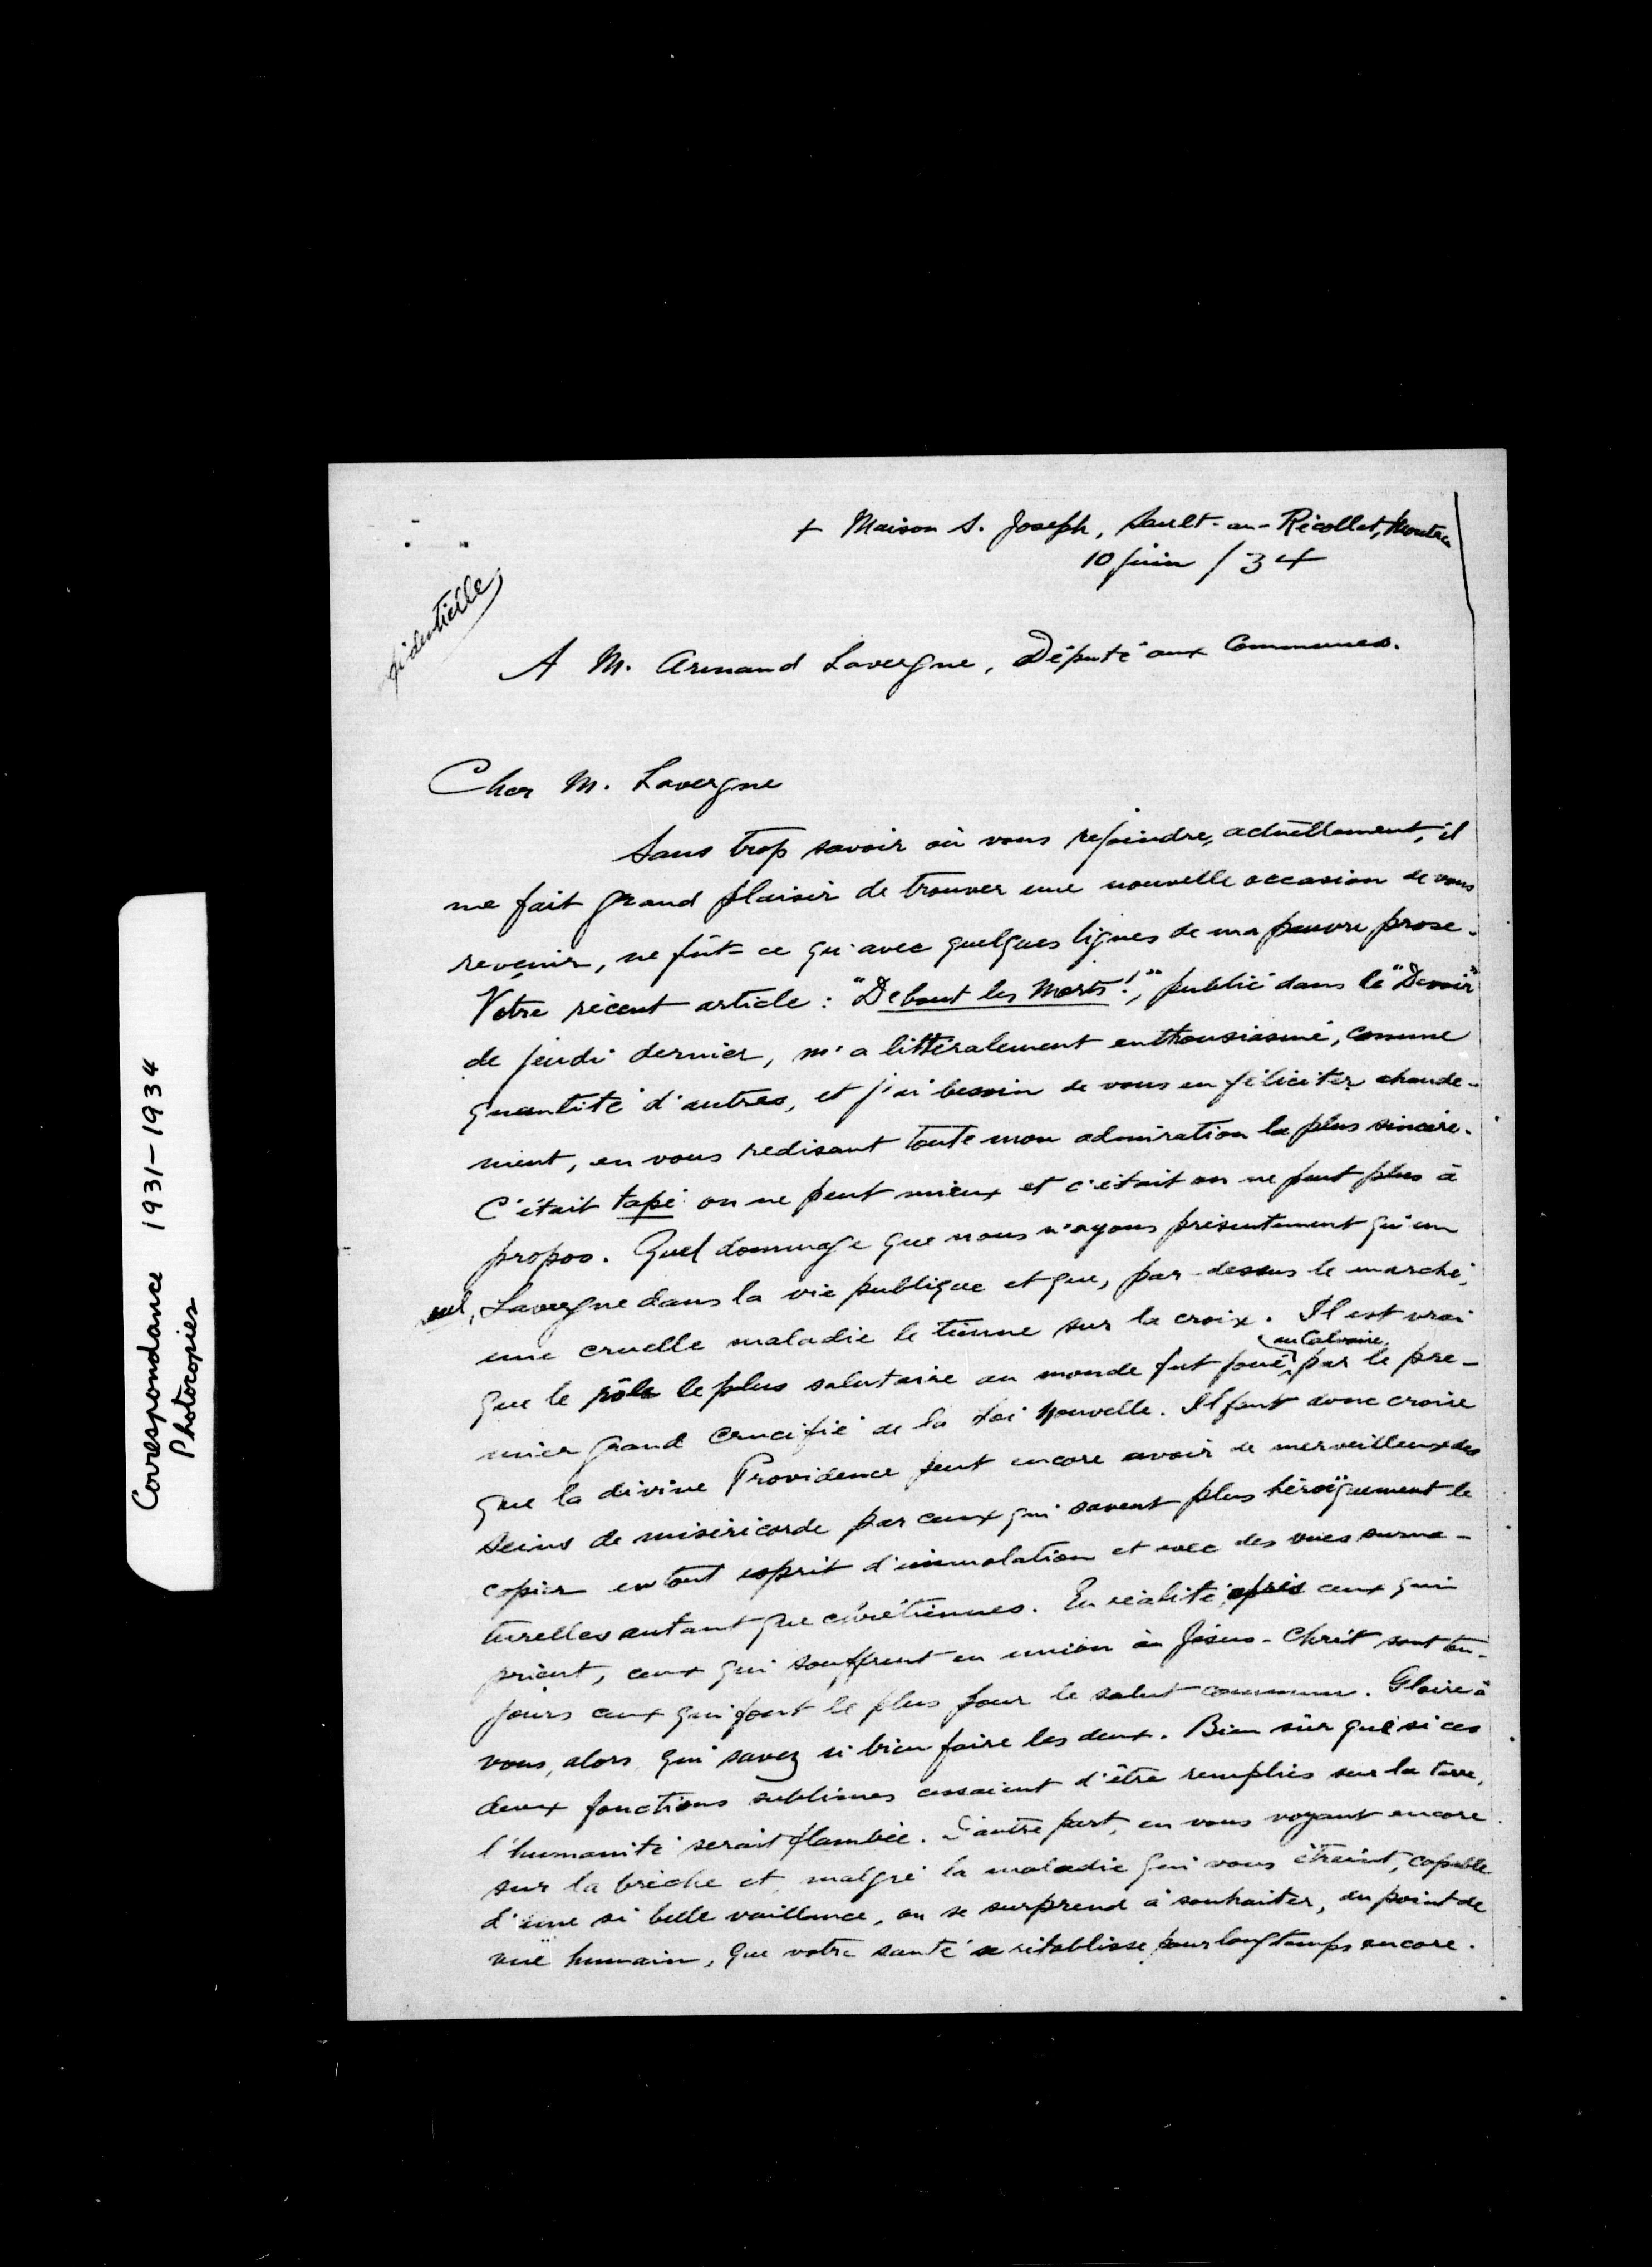 Correspondance 1931-1934
Photocopies
+ Maison S. Joseph, Sault-au-Récollet,
10 juin / 34
fidentielle
A M. Armand Lavergne, Député aux Communes.
Cher M. Lavergne
Sans trop savoir où vous rejoindre, actuellement, il
me fait grand plaisir de trouver une nouvelle occasion de vous
revenir, ne fût-ce qu'avec quelques lignes de ma pauvre prose.
Votre récent article : "Debout les Morts!", publié dans le "Devoir"
de jeudi dernier, m'a littéralement enthousiasmé, comme
quantité d'autres, et j'ai besoin de vous en féliciter chaude-
ment, en vous redisant toute mon admiration la plus sincère.
C'était tapé on ne peut mieux et c'était on ne peut plus à
propos. Quel dommage que nous n'ayons présentement qu'un
seul, Lavergne dans la vie publique et que, par-dessus le marché,
une cruelle maladie le tienne sur la croix. Il est vrai
que le rôle le plus salutaire au monde fut joué, au Calvaire, par le pre-
mier grand Crucifié de la Loi Nouvelle. Il faut donc croire
que la divine Providence peut encore avoir de merveilleux des
seins de miséricorde par ceux qui savent plus héroïquement le
copier en tout esprit d'immolation et avec des vues surna-
turelles autant que chrétiennes. En réalité, après ceux qui
prient, ceux qui souffrent en union à Jésus-Christ sont tou-
jours ceux qui font le plus pour le salut commun. Gloire à
vous, alors, qui savez si bien faire les deux. Bien sûr que si ces
deux fonctions sublimes cessaient d'être remplies sur la terre,
l'humanité serait flambée. D'autre part, en vous voyant encore
sur la brèche et, malgré la maladie qui vous étreint, capable
d'une si belle vaillance, on se surprend à souhaiter, au point de
vue humain, que votre santé se rétablisse pour longtemps encore.